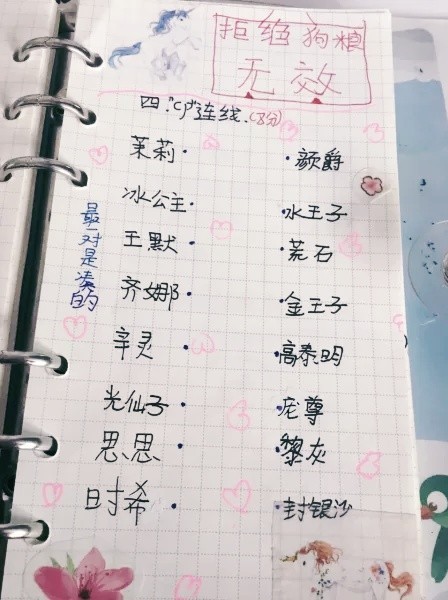 拒绝狗粮
无效
四."CP"连线.(8分)
茉莉· ·颜爵
冰公主· ·水王子
王默· ·荒石
齐娜· ·金王子
辛灵· ·高泰明
光仙子· ·庞尊
思思· ·黎灰
时希· ·封银沙
最一对是凑的